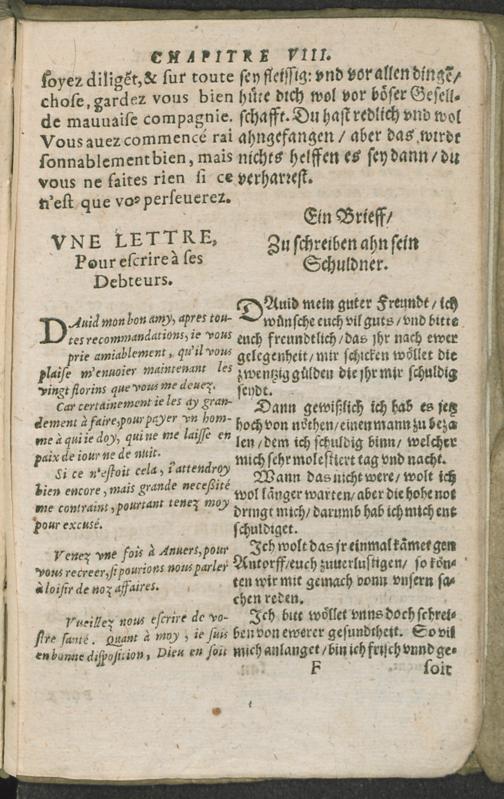 CHAPITRE VIII.
soyez diligēt, & sur toute
chose, gardez vous bien
de mauuaise compagnie.
Vous auez commencé rai
sonnablement bien, mais
vous ne faites rien si ce
n'est que voꝰ perseuerez.
VNE LETTRE,
Pour escrire à ses
Debteurs.
DAuid mon bon amy, apres tou-
tes recommandations, ie vous
prie amiablement, qu'il vous
plaise m'enuoier maintenant les
vingt florins que vous me deuez.
Car certainement ie les ay gran-
dement à faire, pour payer vn hom-
me à qui ie doy, qui ne me laisse en
paix de iour ne de nuit.
Si ce n'estoit cela, i'attendroy
bien encore, mais grande necessité
me contraint, pourtant tenez moy
pour excusé.
Venez vne fois à Anuers, pour
vous recreer, si pourions nous parler
à loisir de noz affaires.
Vueillez nous escrire de vo-
stre santé. Quant à moy, ie suis
en bonne disposition, Dieu en soit
sey fleissig: vnd vor allen dingē/
hüte dich wol vor böser Gesell-
schafft. Du hast redlich vnd wol
ahngefangen / aber das wirdt
nichts helffen es sey dann / du
verharrest.
Ein Brieff/
Zu schreiben ahn sein
Schuldner.
DAuid mein guter Freundt / ich
wünsche euch vil guts / vnd bitte
euch freundtlich / das jhr nach ewer
gelegenheit / mir schicken wöllet die
zwentzig gülden die jhr mir schuldig
seydt.
Dann gewißlich ich hab es jetz
hoch von nöthen / einen mann zu beza
len / dem ich schuldig binn / welcher
mich sehr molestiert tag vnd nacht.
Wann das nicht were / wolt ich
wol länger warten / aber die hohe not
dringt mich / darumb hab ich mich ent
schuldiget.
Ich wolt das jr einmal kämet gen
Antorff / euch zuuerlustigen / so kön-
ten wir mit gemach vonn vnsern sa-
chen reden.
Ich bitt wöllet vnns doch schrei-
ben von ewerer gesundtheit. So vil
mich anlanget / bin ich frisch vnnd ge-
F
soit